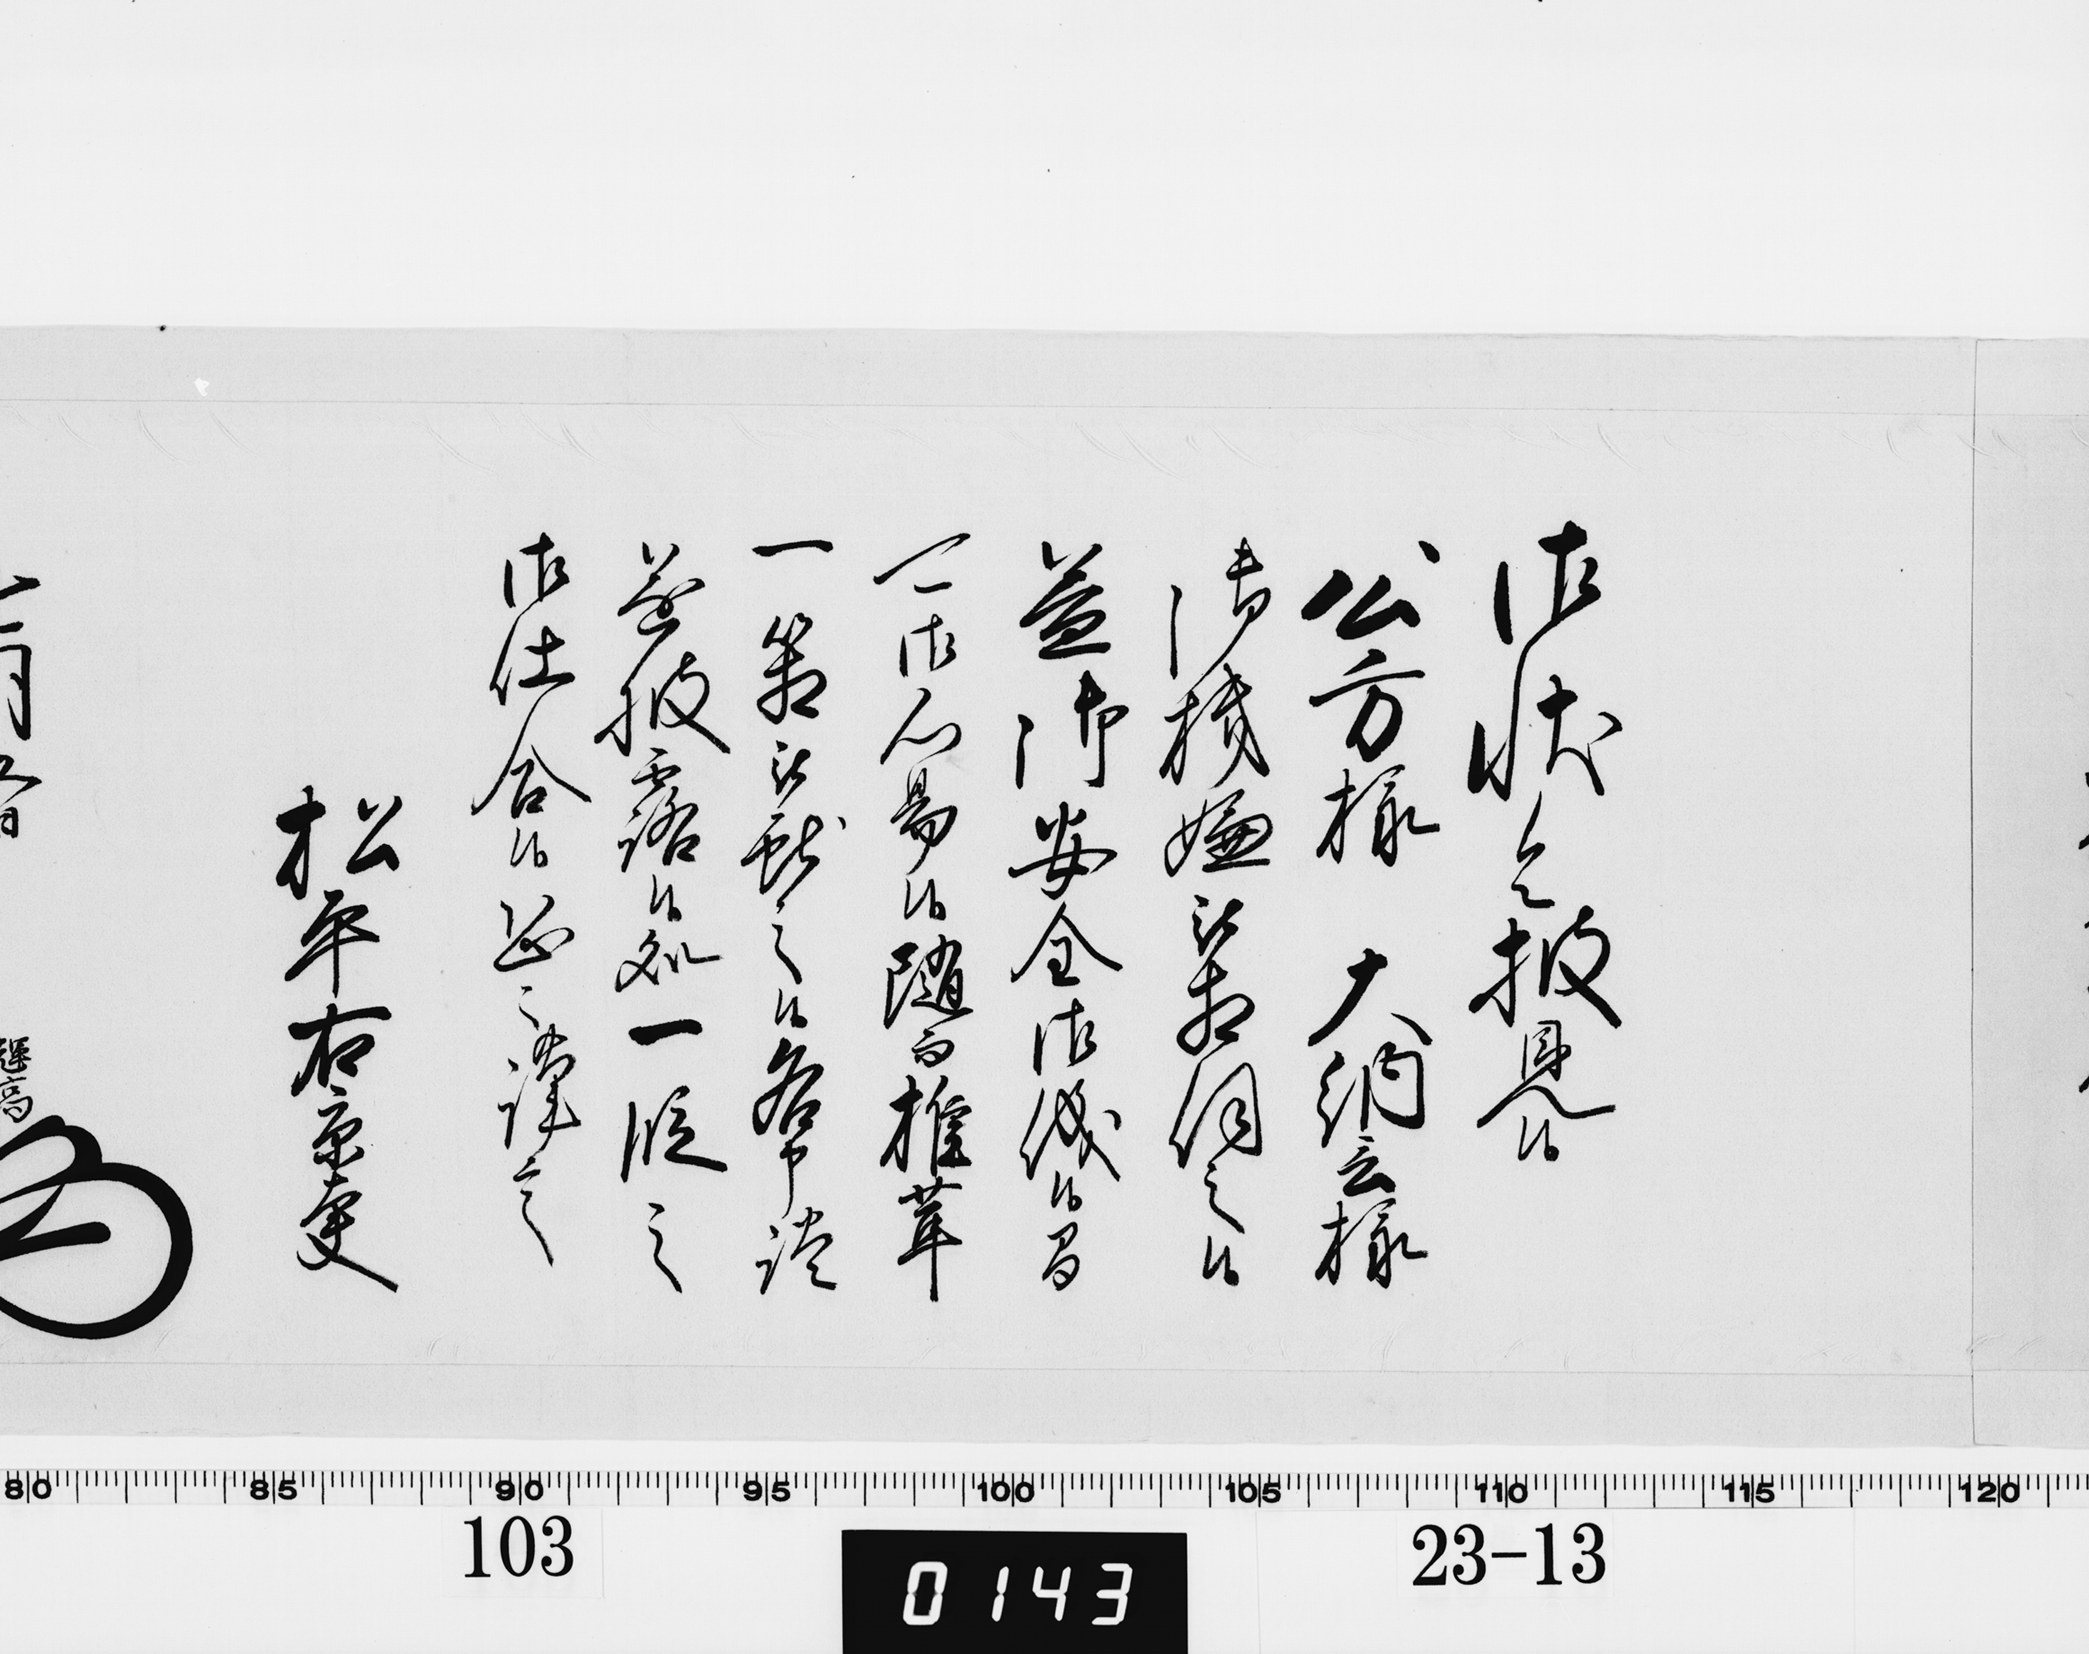 御状令披見候
公方様 大納言様
御機嫌被相伺之候
益御安全御儀候間
可御心易候随而椎茸
一箱被献之候各申談
遂披露候処一段之
御仕合候恐々謹言
松平右京大夫
輝高
80 85 90 95 100 105 110 115 120
103
0143
23-13